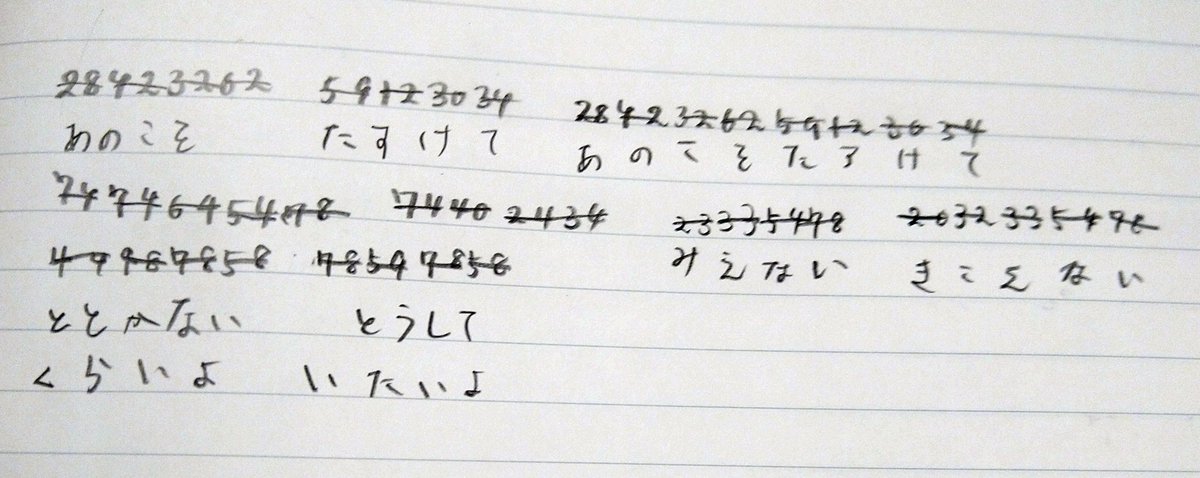 28423262 59123034 2842326259123034
あのこを たすけて あのこをたすけて
7474645478 7440 2434 23335478 2032335478
49987858 78597858 みえない きこえない
ととかない とうして
くらいよ いたいよ